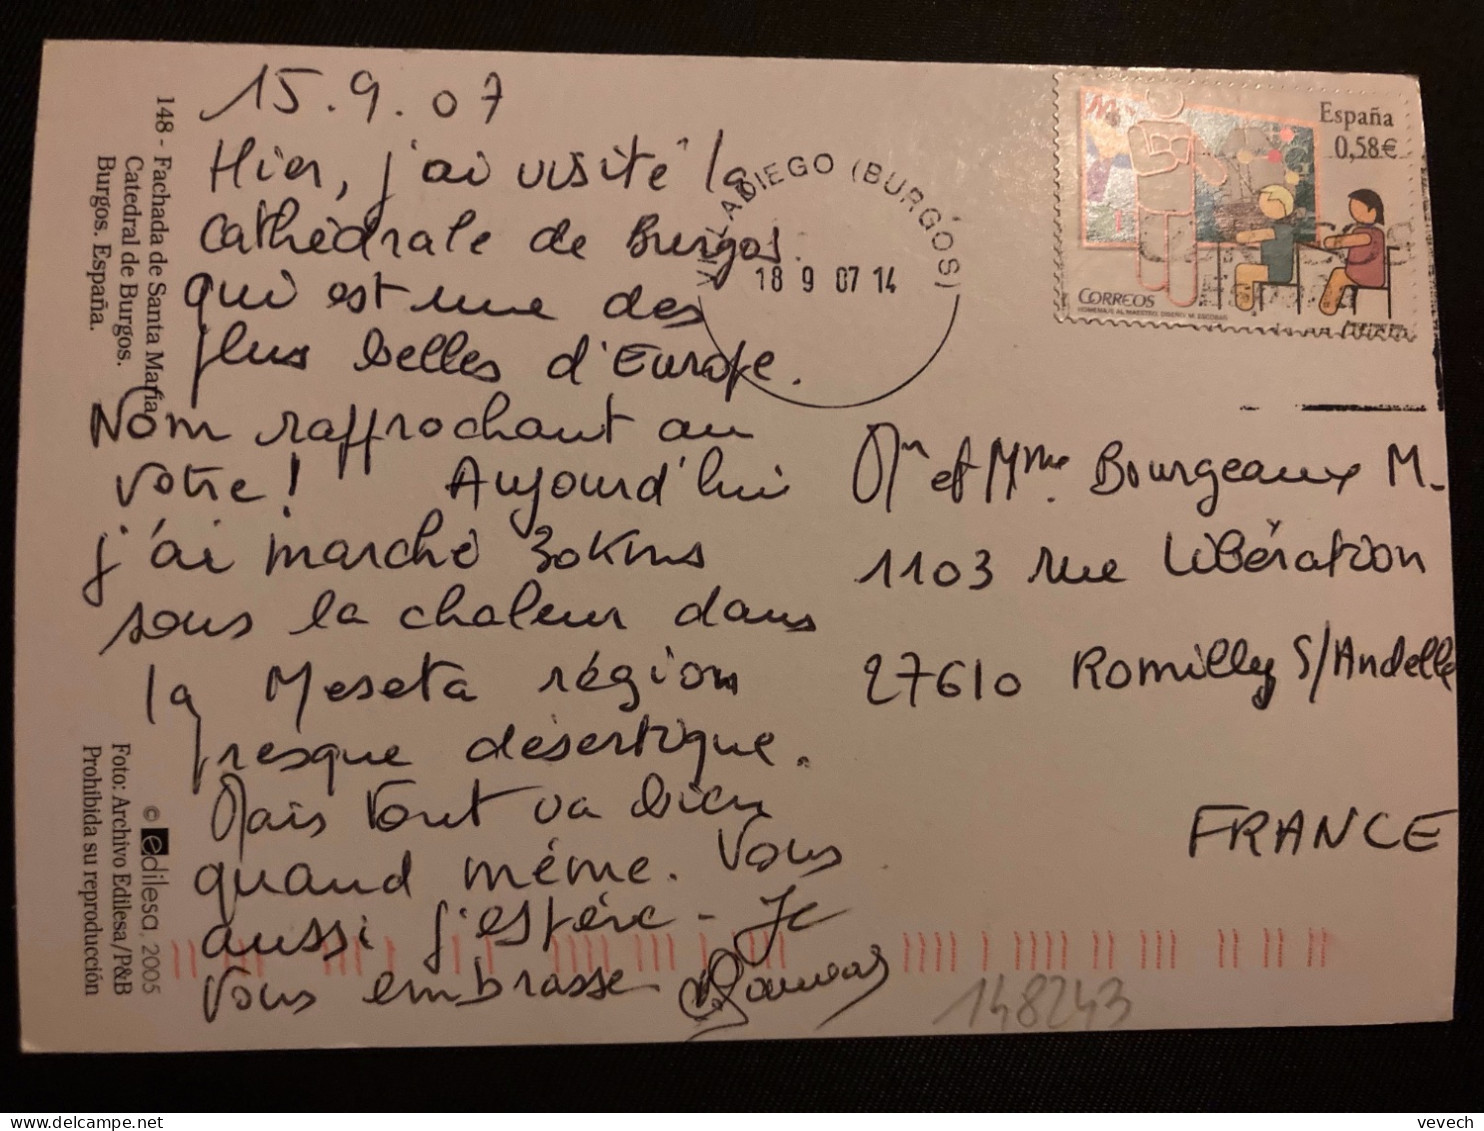 15.9.07
Hier, j'ai visité la
cathédrale de Burgos.
qui est une des
plus belles d'Europe.
Nom rapprochant au
votre! Aujourd'hui
j'ai marché 30 Kms
sous la chaleur dans
la Meseta région
presque désertique.
Mais tout va bien
quand même. Vous
aussi j'espère - Je
vous embrasse
148 - Fachada de Santa María.
Catedral de Burgos.
Burgos. España.
© edilesa, 2005
Foto: Archivo Edilesa/P&B
Prohibida su reproducción
VILLADIEGO (BURGOS)
18 9 07 14
España
0,58€
CORREOS
HOMENAJE AL MAESTRO DISEÑO M. ESCOBAR
Mr et Mme. Bourgeaux M.
1103 rue Libération
27610 Romilly S/Andelle
FRANCE
148243
vevech